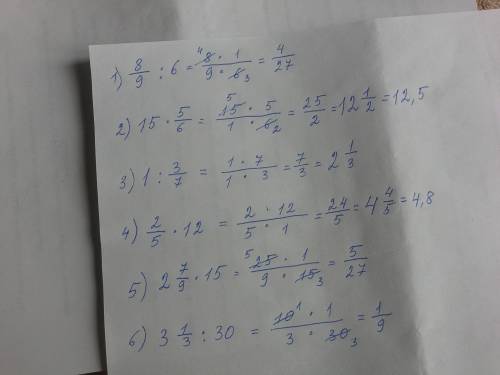 1) 8/9 : 6 = 8 · 1 / 9 · 6 = 4/27
2) 15 · 5/6 = 15 · 5 / 1 · 6 = 25/2 = 12 1/2 = 12,5
3) 1 : 3/7 = 1 · 7 / 1 · 3 = 7/3 = 2 1/3
4) 2/5 · 12 = 2 · 12 / 5 · 1 = 24/5 = 4 4/5 = 4,8
5) 2 7/9 · 15 = 25 · 1 / 9 · 15 = 5/27
6) 3 1/3 : 30 = 10 · 1 / 3 · 30 = 1/9